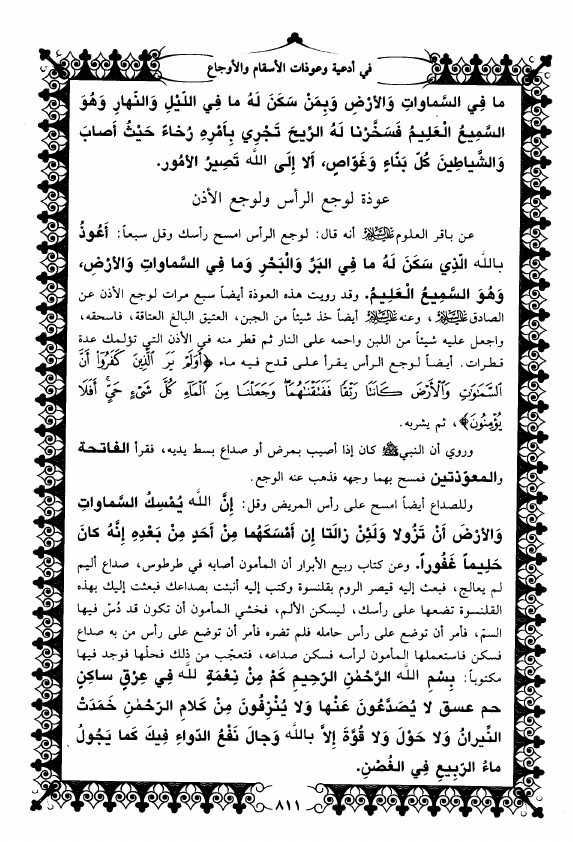 في أدعية وعوذات الأسقام والأوجاع
ما فِي السَّماواتِ وَالأرْضِ وَبِمَنْ سَكَنَ لَهُ ما فِي اللَّيْلِ وَالنَّهارِ وَهُوَ
السَّمِيعُ الْعَلِيمُ فَسَخَّرْنا لَهُ الرِّيحَ تَجْرِي بِأَمْرِهِ رُخاءً حَيْثُ أصابَ
وَالشَّياطِينَ كُلَّ بَنّاءٍ وَغَوّاصٍ، ألا إلَى اللَّه تَصِيرُ الأمُور.
عوذة لوجع الرأس ولوجع الأذن
عن باقر العلوم عليه السلام أنه قال: لوجع الرأس امسح رأسك وقل سبعاً: أعُوذُ
بالله الَّذِي سَكَنَ لَهُ ما فِي البَرِّ وَالْبَحْرِ وَما فِي السَّماواتِ وَالأرْضِ،
وَهُوَ السَّمِيعُ الْعَلِيمُ. وقد رويت هذه العوذة أيضاً سبع مرات لوجع الأذن عن
الصادق عليه السلام، وعنه عليه السلام أيضاً خذ شيئاً من الجبن، العتيق البالغ العتاقة، فاسحقه،
واجعل عليه شيئاً من اللبن واحمه على النار ثم قطر منه في الأذن التي تؤلمك عدة
قطرات. أيضاً لوجع الرأس يقرأ على قدح فيه ماء ﴿أَوَلَمْ يَرَ الَّذِينَ كَفَرُوا أَنَّ
السَّمَوَاتِ وَالْأَرْضَ كَانَتَا رَتْقًا فَفَتَقْنَاهُمَا وَجَعَلْنَا مِنَ الْمَاءِ كُلَّ شَيْءٍ حَيٍّ أَفَلَا
يُؤْمِنُونَ﴾، ثم يشربه.
وروي أن النبي ﷺ كان إذا أصيب بمرض أو صداع بسط يديه، فقرأ الفاتحة
والمعوّذتين فمسح بهما وجهه فذهب عنه الوجع.
وللصداع أيضاً امسح على رأس المريض وقل: إنَّ اللَّه يُمْسِكُ السَّماواتِ
وَالأرْضَ أنْ تَزُولا وَلَئِنْ زالَتا إن أمْسَكَهُما مِنْ أحَدٍ مِنْ بَعْدِهِ إنَّهُ كانَ
حَلِيماً غَفُوراً. وعن كتاب ربيع الأبرار أن المأمون أصابه في طرطوس، صداع أليم
لم يعالج، فبعث إليه قيصر الروم بقلنسوة وكتب إليه أنبئت بصداعك فبعثت إليك بهذه
القلنسوة تضعها على رأسك، ليسكن الألم، فخشي المأمون أن تكون قد دُسّ فيها
السمّ، فأمر أن توضع على رأس حامله فلم تضره فأمر أن توضع على رأس من به صداع
فسكن فاستعملها المأمون لرأسه فسكن صداعه، فتعجّب من ذلك فحلّها فوجد فيها
مكتوباً: بِسْمِ اللَّه الرَّحْمٰنِ الرَّحِيمِ كَمْ مِنْ نِعْمَةٍ للَّه فِي عِرْقٍ ساكِنٍ
حم عسق لا يُصَدَّعُونَ عَنْها وَلا يُنْزِفُونَ مِنْ كَلامِ الرَّحْمٰنِ خَمَدَتْ
النِّيرانُ وَلا حَوْلَ وَلا قُوَّةَ إلاّ بالله وَجالَ نَفْعُ الدَّواءِ فِيكَ كَما يَجُولُ
ماءُ الرَّبِيعِ فِي الغُصْنِ.
٨١١